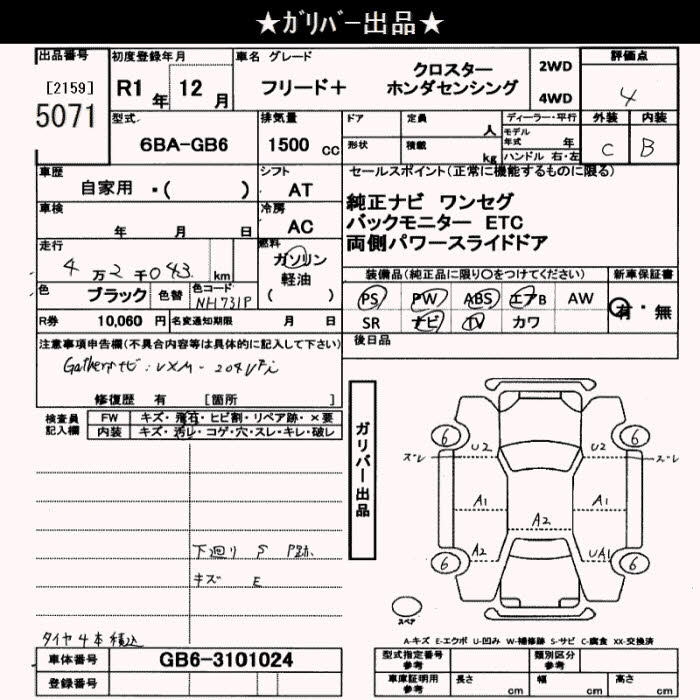 ★ガリバー出品★
出品番号
[2159]
5071
初度登録年月
R1年 12月
車名 グレード
フリード＋
クロスター
ホンダセンシング
2WD
4WD
評価点
4
型式
6BA-GB6
排気量
1500 cc
ドア
定員
人
形状
積載
kg
ディーラー・平行
モデル年式 年
ハンドル 右・左
外装
C
内装
B
車歴
自家用 ・( )
シフト
AT
車検
年 月 日
冷房
AC
走行
4万2千043 km
燃料
ガソリン
軽油
( )
色
ブラック
色替
色コード
NH731P
R券
10,060 円
名変通知期限
月 日
セールスポイント(正常に機能するものに限る)
純正ナビ ワンセグ
バックモニター ETC
両側パワースライドドア
装備品(純正品に限り〇をつけてください)
新車保証書
PS PW ABS エアB AW
SR ナビ TV カワ
有・無
後日品
注意事項申告欄(不具合内容等は具体的に記入して下さい)
Gathersナビ:VXM-204VFi
修復歴 有 [箇所 ]
検査員
記入欄
FW
キズ・飛石・ヒビ割・リペア跡・×要
内装
キズ・汚レ・コゲ・穴・スレ・キレ・破レ
下廻り S P跡
キズ E
タイヤ4本積込
ガリバー出品
6
6
U2
U2
ズレ
ズレ
A1
A1
A2
A2
UA1
6
6
スペア
A-キズ E-エクボ U-凹み W-補修跡 S-サビ C-腐食 XX-交換済
車体番号
GB6-3101024
登録番号
型式指定番号
参考
類別区分
参考
車庫証明用
参考
長さ
cm
幅
cm
高さ
cm